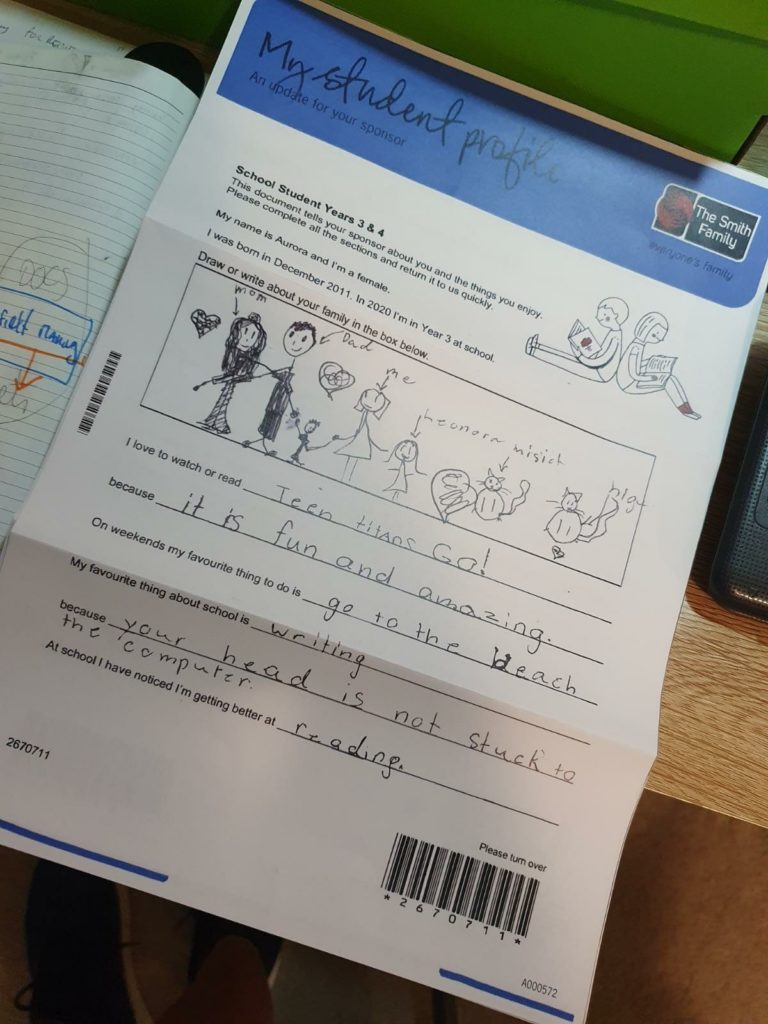 My student profile
An update for your sponsor
The Smith
Family
everyone's family
School Student Years 3 & 4
This document tells your sponsor about you and the things you enjoy.
Please complete all the sections and return it to us quickly.
My name is Aurora and I'm a female.
I was born in December 2011. In 2020 I'm in Year 3 at school.
Draw or write about your family in the box below.
mom
Dad
me
Leonora
I love to watch or read Teen titans GO!
because it is fun and amazing.
On weekends my favourite thing to do is go to the beach
My favourite thing about school is writing
because your head is not stuck to
the computer.
At school I have noticed I'm getting better at reading.
2670711
Please turn over
*2670711*
A000572